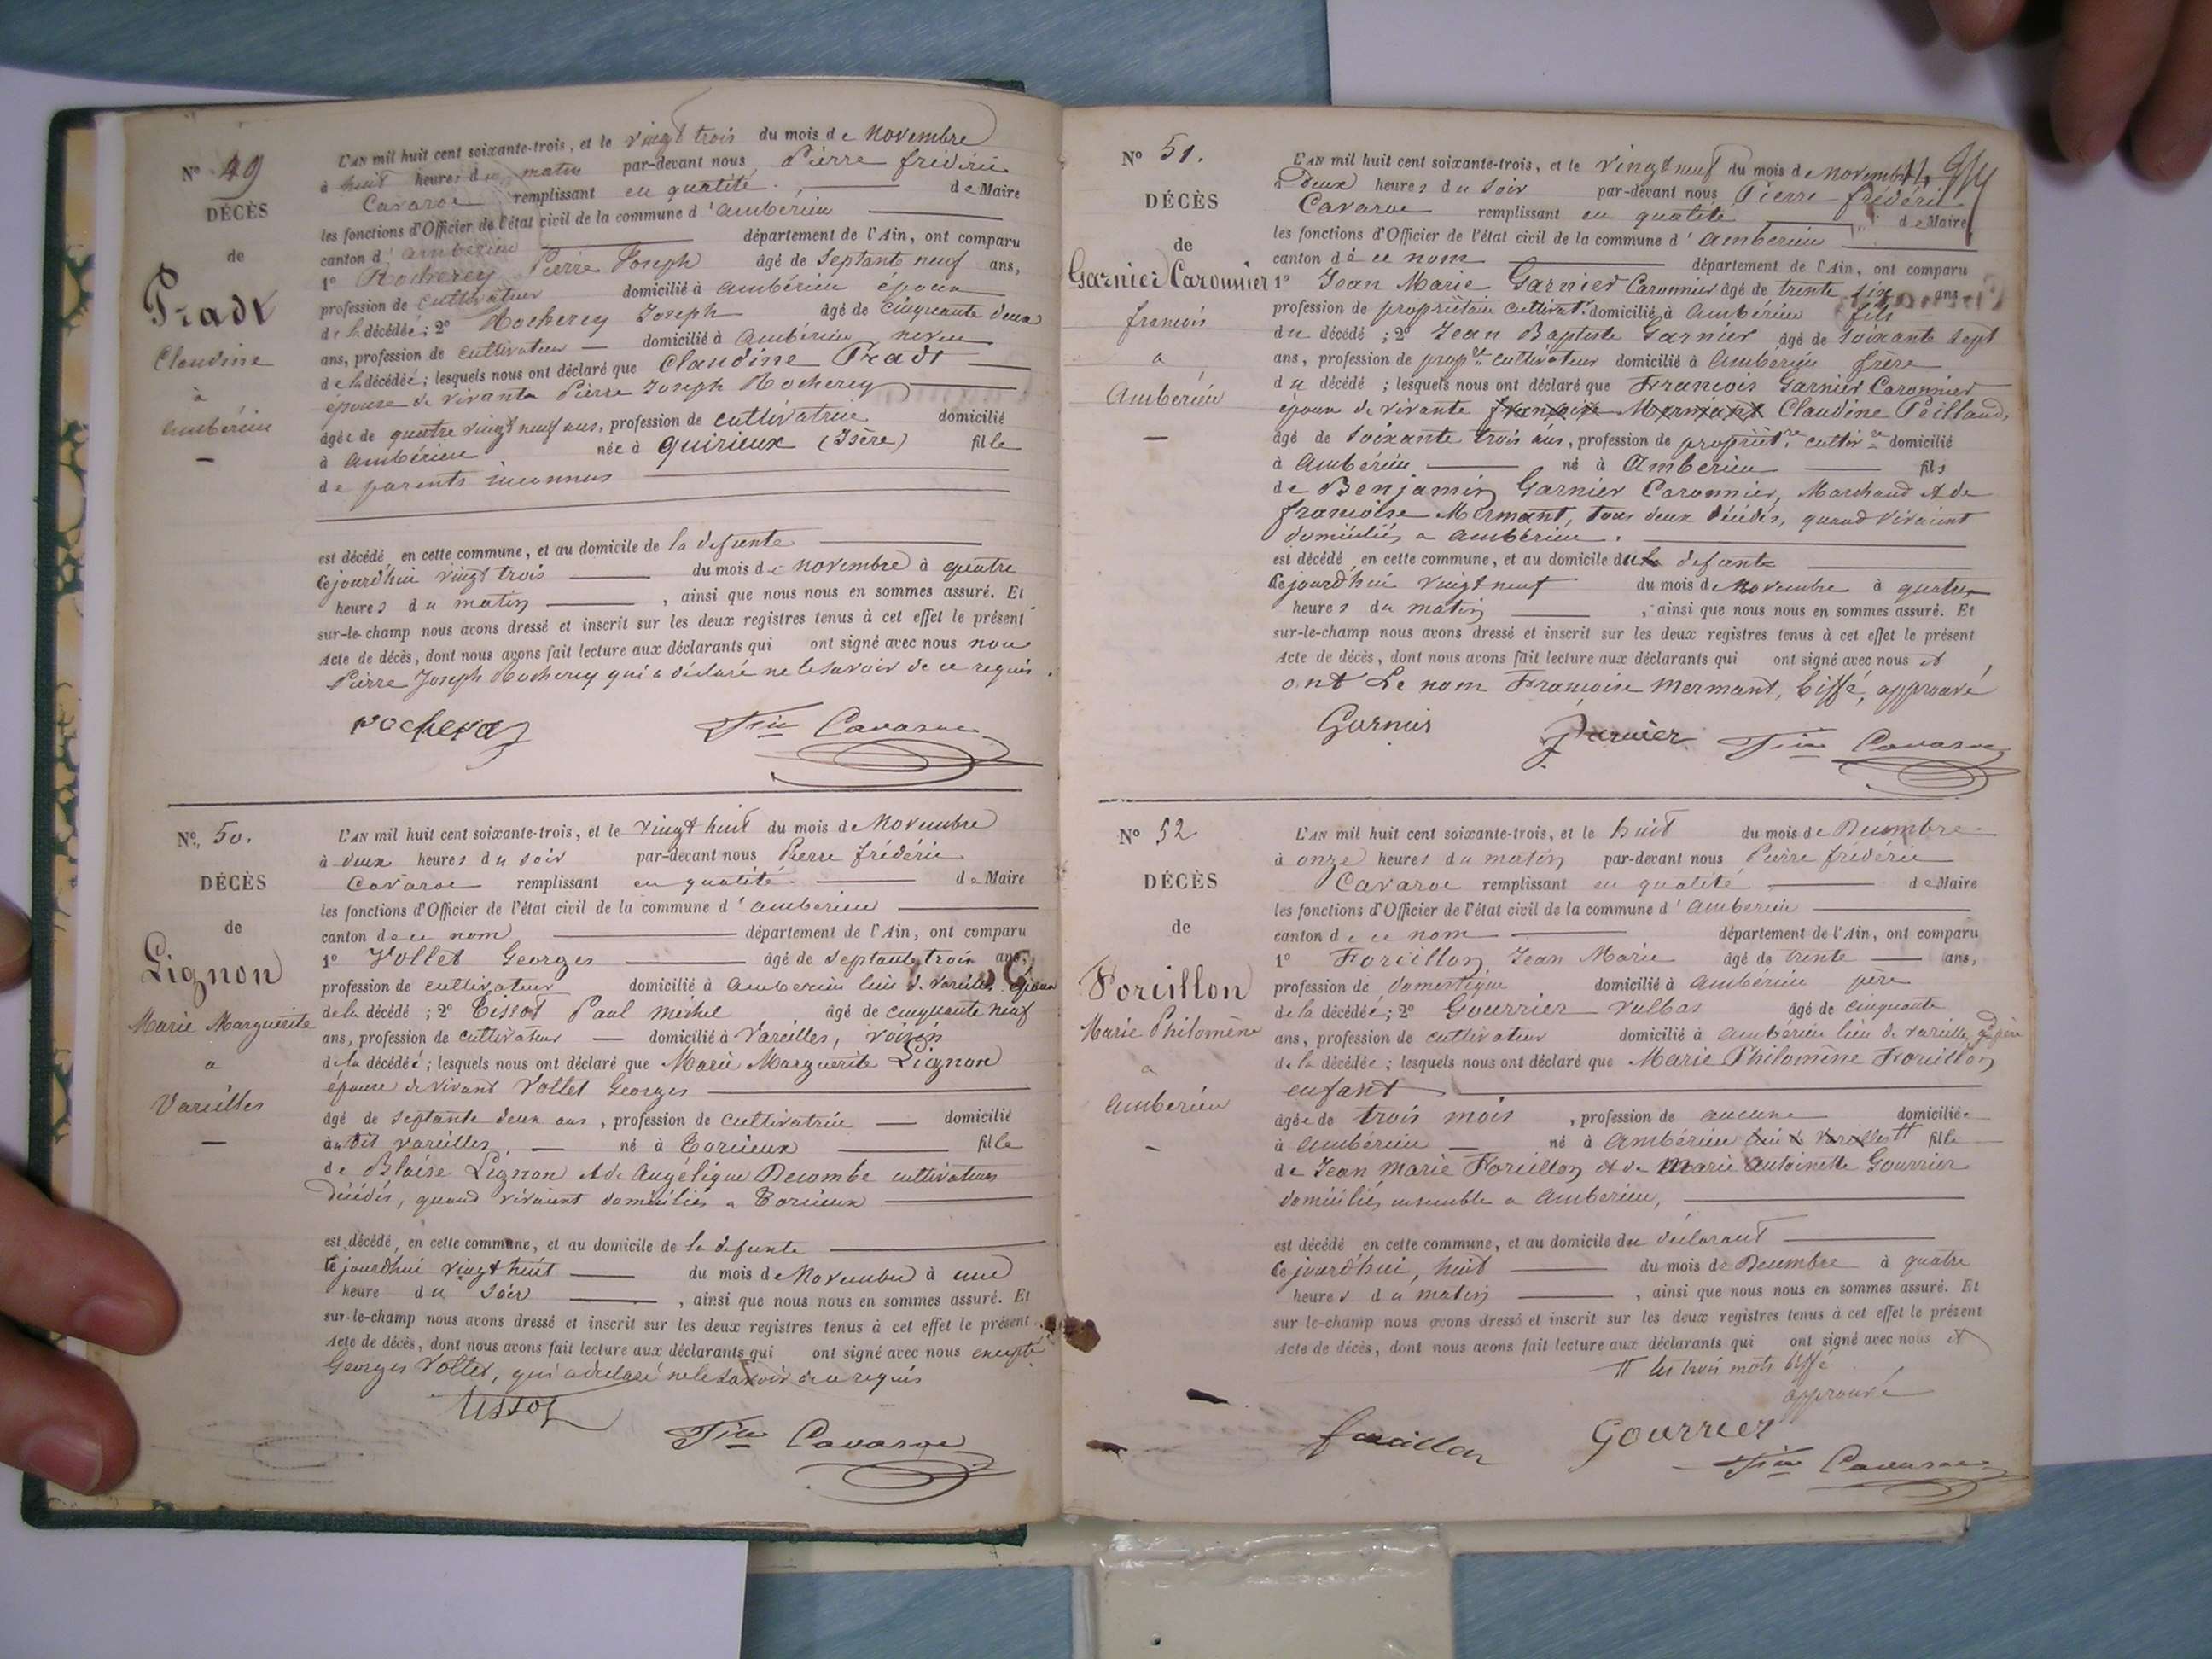 Nº 49
DÉCÈS
de
Pradt
Claudine
à
ambérieu
L'AN mil huit cent soixante-trois, et le vingt trois du mois de Novembre
à huit heures du matin par-devant nous Pierre frédéric
Cavaroc remplissant en qualité de Maire
les fonctions d'Officier de l'état civil de la commune d'ambérieu
canton d'ambérieu département de l'Ain, ont comparu
1º Rocherey Pierre Joseph âgé de Septante neuf ans,
profession de cultivateur domicilié à ambérieu époux
de la décédée; 2º Rocherey Joseph âgé de cinquante deux
ans, profession de cultivateur domicilié à ambérieu neveu
de la décédée; lesquels nous ont déclaré que Claudine Pradt
épouse de vivante Pierre Joseph Rocherey
âgée de quatre vingt neuf ans, profession de cultivatrice domicilié
à ambérieu née à quirieux (Isère) fille
de parents inconnus
est décédé en cette commune, et au domicile de la defunte
Cejourd'hui vingt trois du mois de novembre à quatre
heures du matin, ainsi que nous nous en sommes assuré. Et
sur-le-champ nous avons dressé et inscrit sur les deux registres tenus à cet effet le présent
Acte de décès, dont nous avons fait lecture aux déclarants qui ont signé avec nous non
Pierre Joseph Rocherey qui a déclaré ne le savoir de ce requis.
rocherey Fric Cavaroc
Nº 50.
DÉCÈS
de
Lignon
Marie Marguerite
a
Vareilles
L'AN mil huit cent soixante-trois, et le vingt huit du mois de Novembre
à deux heures du soir par-devant nous Pierre frédéric
Cavaroc remplissant en qualité de Maire
les fonctions d'Officier de l'état civil de la commune d'ambérieu
canton de ce nom département de l'Ain, ont comparu
1º Vollet Georges âgé de septante trois ans,
profession de cultivateur domicilié à ambérieu lieu d. Vareilles époux
de la décédé; 2º Tissot Paul michel âgé de cinquante neuf
ans, profession de cultivateur domicilié à Vareilles, voisin
de la décédée; lesquels nous ont déclaré que Marie Marguerite Lignon
épouse de vivant Vollet Georges
âgé de septante deux ans, profession de cultivatrice domicilié
au dit vareilles, né à Torcieux fille
de Blaise Lignon et de Angélique Decombe cultivateurs
décédés, quand vivaient domiciliés a Torcieux
est décédé, en cette commune, et au domicile de la defunte
Cejourdhui vingt huit du mois de Novembre à une
heure du soir, ainsi que nous nous en sommes assuré. Et
sur-le-champ nous avons dressé et inscrit sur les deux registres tenus à cet effet le présent
Acte de décès, dont nous avons fait lecture aux déclarants qui ont signé avec nous excepté
Georges Vollet, qui a declaré ne le savoir de ce requis
tissot
Fric Cavaroc
Nº 51.
DÉCÈS
de
Garnier Caronnier
francois
a
Ambérieu
L'AN mil huit cent soixante-trois, et le vingt neuf du mois de novembre
à Deux heures du soir par-devant nous Pierre frédéric
Cavaroc remplissant en qualité de Maire
les fonctions d'Officier de l'état civil de la commune d'ambérieu
canton de ce nom département de l'Ain, ont comparu
1º Jean Marie Garnier Caronnier âgé de trente six ans
profession de propriétaire cultivatr domicilié à Ambérieu fils
du décédé; 2º Jean Baptiste Garnier âgé de soixante sept
ans, profession de propre cultivateur domicilié à Ambérieu frère
du décédé; lesquels nous ont déclaré que François Garnier Caronnier
époux de vivante françoise Mermant Claudine Peilland,
âgé de soixante trois ans, profession de propriétre cultivr domicilié
à Ambérieu né à Ambérieu fils
de Benjamin Garnier Caronnier, Marchand et de
françoise Mermant, tous deux décédés, quand vivaient
domiciliés a ambérieu.
est décédé en cette commune, et au domicile du defunt
Cejourdhui vingt neuf du mois de Novembre à quatre
heures du matin, ainsi que nous nous en sommes assuré. Et
sur-le-champ nous avons dressé et inscrit sur les deux registres tenus à cet effet le présent
Acte de décès, dont nous avons fait lecture aux déclarants qui ont signé avec nous et
ont Le nom Françoise Mermant, biffé, approuvé
Garnier garnier Fric Cavaroc
Nº 52
DÉCÈS
de
Foreillon
Marie Philomène
a
Ambérieu
L'AN mil huit cent soixante-trois, et le huit du mois de Decembre
à onze heures du matin par-devant nous Pierre frédéric
Cavaroc remplissant en qualité de Maire
les fonctions d'Officier de l'état civil de la commune d'ambérieu
canton de ce nom département de l'Ain, ont comparu
1º Foreillon Jean Marie âgé de trente ans,
profession de domestique domicilié à ambérieu père
de la décédée; 2º Gourrier Vulbas âgé de cinquante
ans, profession de cultivateur domicilié à ambérieu lieu de vareilles gd père
de la décédée; lesquels nous ont déclaré que Marie Philomène Foreillon
enfant
âgée de trois mois, profession de aucune domiciliée
à ambérieu né à Ambérieu lieu de Vareilles fille
de Jean Marie Foreillon et de Marie Antoinette Gourrier
domiciliés ensemble a Amberieu,
est décédé en cette commune, et au domicile du déclarant
Cejourd'hui, huit du mois de Decembre à quatre
heures du matin, ainsi que nous nous en sommes assuré. Et
sur le-champ nous avons dressé et inscrit sur les deux registres tenus à cet effet le présent
Acte de décès, dont nous avons fait lecture aux déclarants qui ont signé avec nous et
les trois mots biffé
approuvé
foreillon Gourrier
Fric Cavaroc